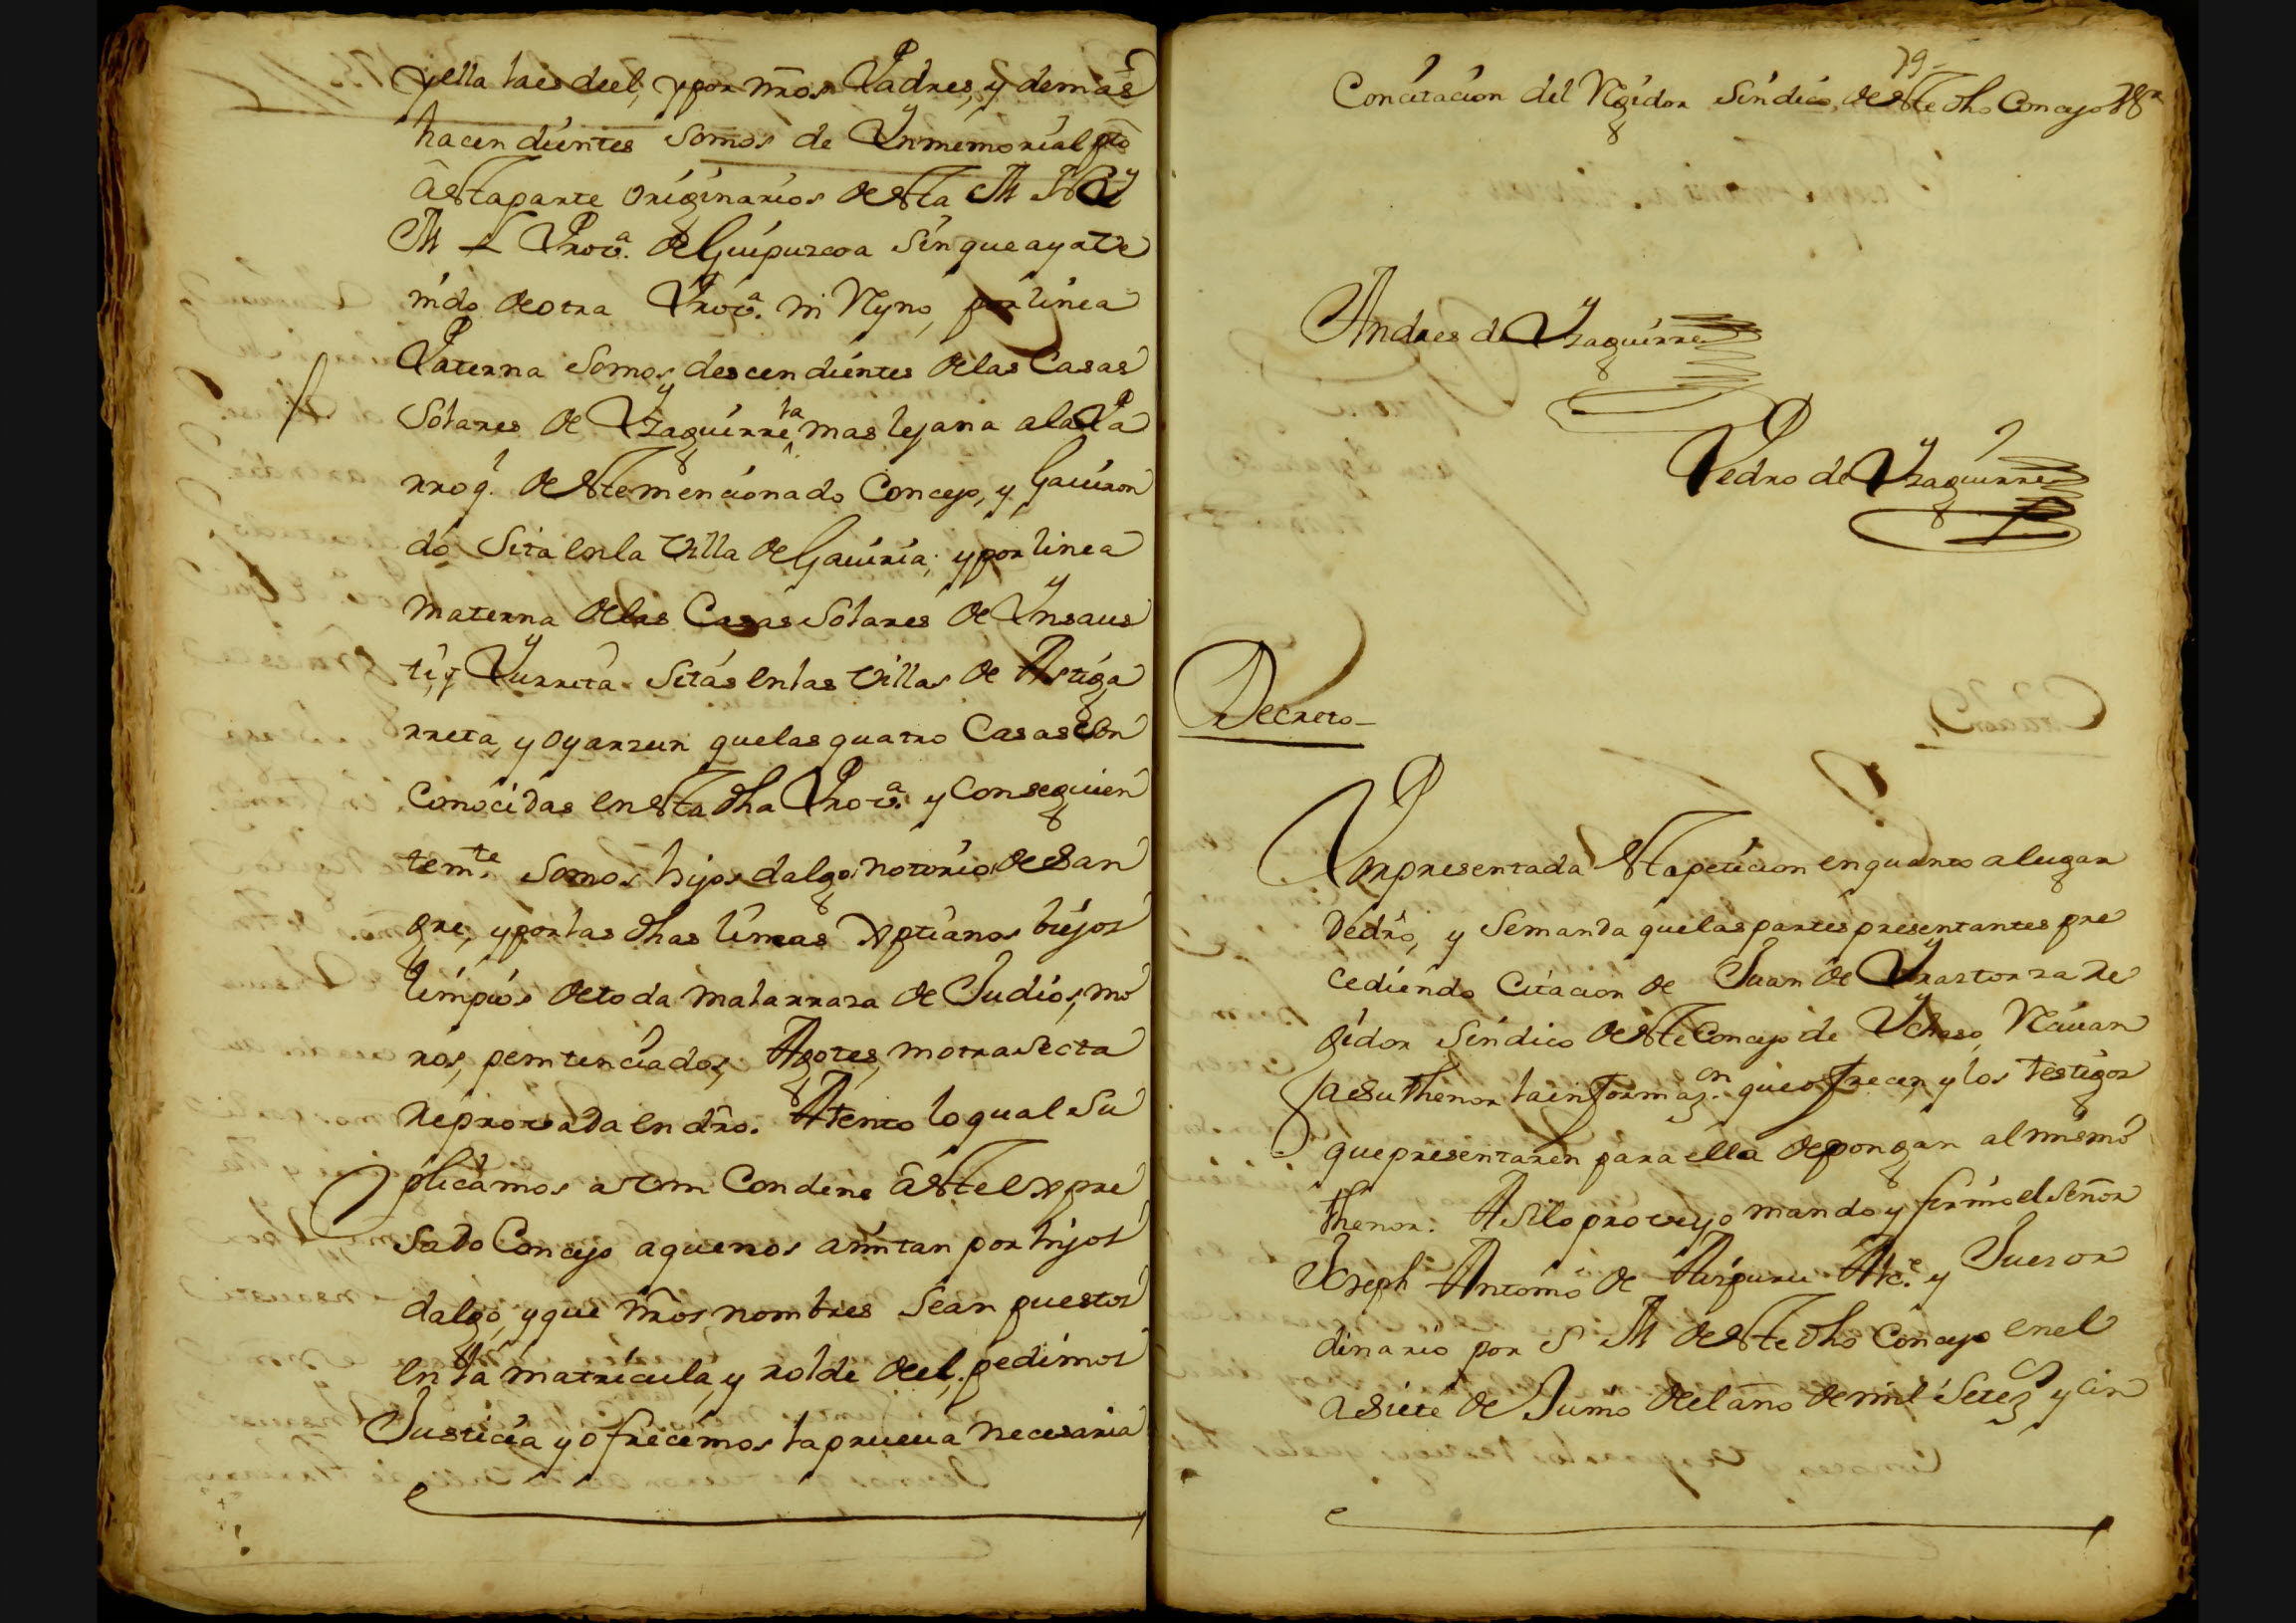 y ella la es deel, y por nr̃os Padres, y demas
hacendientes somos de Ynmemorial tpõ
a esta parte originarios de esta M N Y
M L Prov.ª de Guipuzcoa sin que aya ve
nido de otra Prov.ª ni Reyno, por linea
Paterna somos descendientes de las Casas
Solares de Yzaguirre la mas lejana a la Pa
rroq.l de este mencionado Concejo, y Gauiron
do sita en la Villa de Gauiria; y por linea
materna de las Casas Solares de Ynsaus
ti, y Yurreta sitas en las Villas de Astiga
rreta, y Oyarzun que las quatro Casas son
Conocidas en esta dha Prov.ª y Conseguien
tem.te somos hijos dalgo notorios de San
gre; y por las dhas lineas Xptianos biejos
limpios de toda mala rraza de Judios, mo
ros, penitenciados, Agotes, ni otra secta
reprovada en dr̃o. Atento lo qual su
plicamos a Vm Condene a este expre
sado Concejo a que nos admitan por hijos
dalgo, y que nr̃os nombres sean puestos
en la matricula, y rolde deel, pedimos
Justicia y ofrecemos la prueua necesaria
79
Con citacion del Regidor Sindico, de este dho Concejo
Andres de Yzaguirre
Pedro de Yzaguirre
Decreto
Por presentada esta peticion en quanto a lugar
dedr̃o, y se manda que las partes presentantes pre
cediendo Citacion de Juan de Yraztorza Re
gidor Sindico de este Concejo de Ychaso, Reciuan
a su thenor la informaz.on que ofrecen, y los testigos
que presentaren para ella depongan al mismo
thenor. Asi lo proveyo mando y firmo el Señor
Joseph Antonio de Aizpuru Alc.e y Juez or
dinario por S M de este dho Concejo en el
a siete de Junio del año de mil Setez y cin